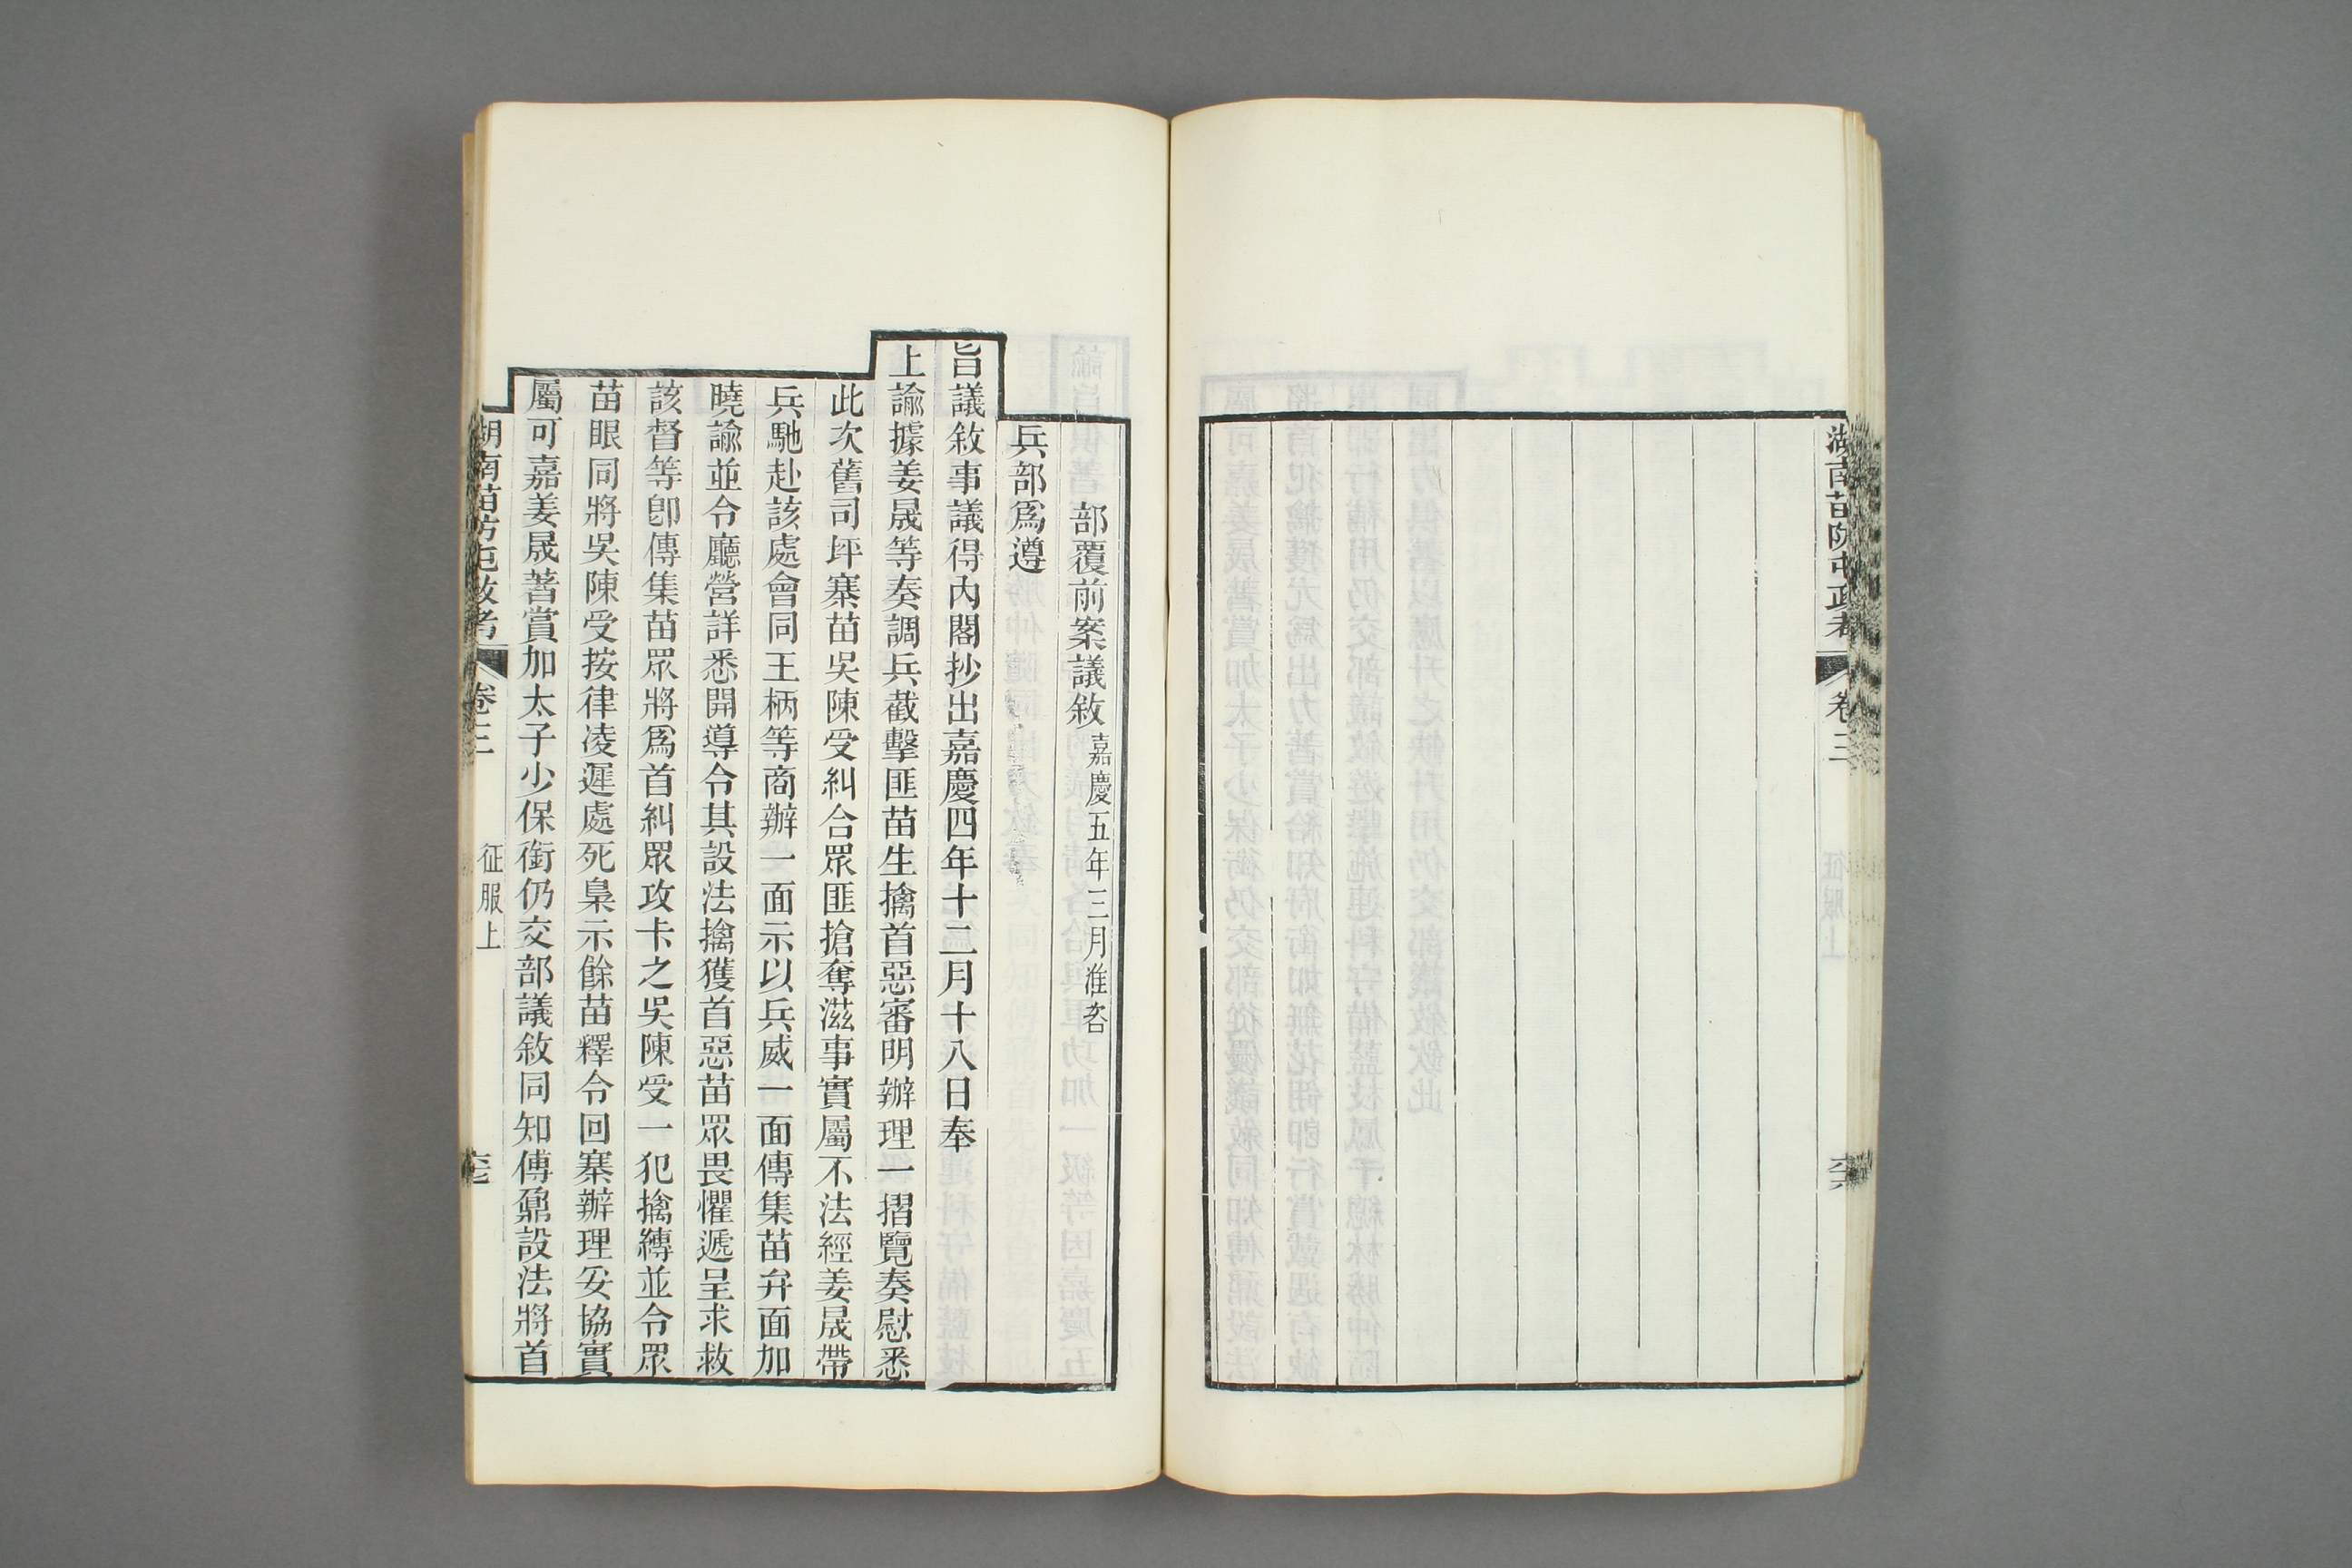 湖南苗防屯政考
卷三
征服上
六六
部覆前案議敘嘉慶五年三月准咨
兵部爲遵
旨議敘事議得內閣抄出嘉慶四年十二月十八日奉
上諭據姜晟等奏調兵截擊匪苗生擒首惡審明辦理一摺覽奏慰悉
此次舊司坪寨苗吳陳受糾合眾匪搶奪滋事實屬不法經姜晟帶
兵馳赴該處會同王柄等商辦一面示以兵威一面傳集苗弁面加
曉諭並令廳營詳悉開導令其設法擒獲首惡苗眾畏懼遞呈求救
該督等卽傳集苗眾將爲首糾眾攻卡之吳陳受一犯擒縛並令眾
苗眼同將吳陳受按律凌遲處死梟示餘苗釋令回寨辦理妥協實
屬可嘉姜晟著賞加太子少保銜仍交部議敘同知傅鼐設法將首
湖南苗防屯政考
卷三
征服上
六七